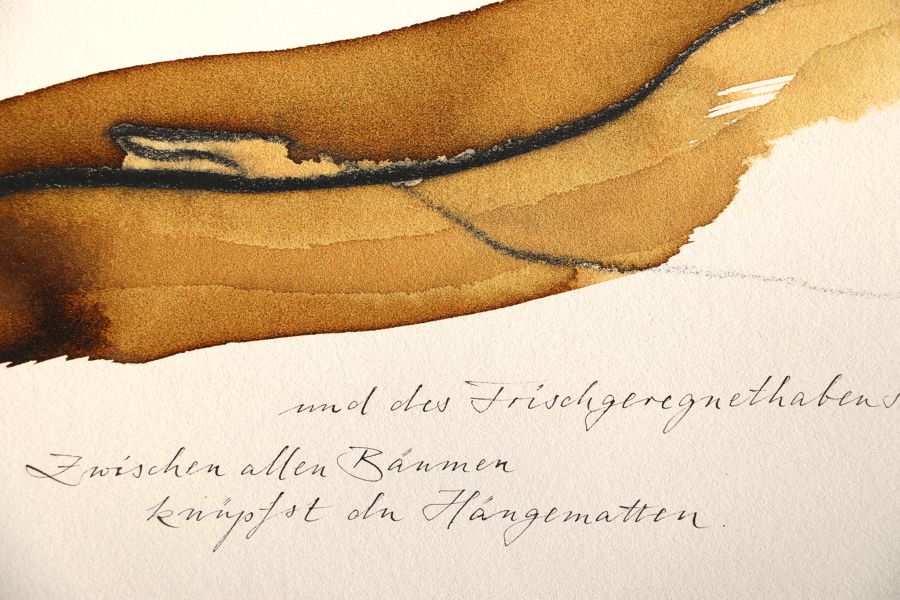 und des Frischgeregnethabens
Zwischen allen Bäumen
knüpfst du Hängematten.